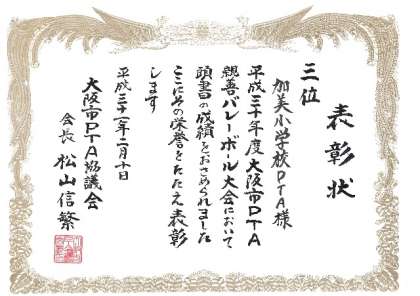 表彰状
三位
加美小学校PTA様
平成三十年度大阪市PTA
親善バレーボール大会において
頭書の成績をおさめられました
ここにその栄誉をたたえ表彰
します
平成三十一年二月十日
大阪市PTA協議会
会長 松山信繁